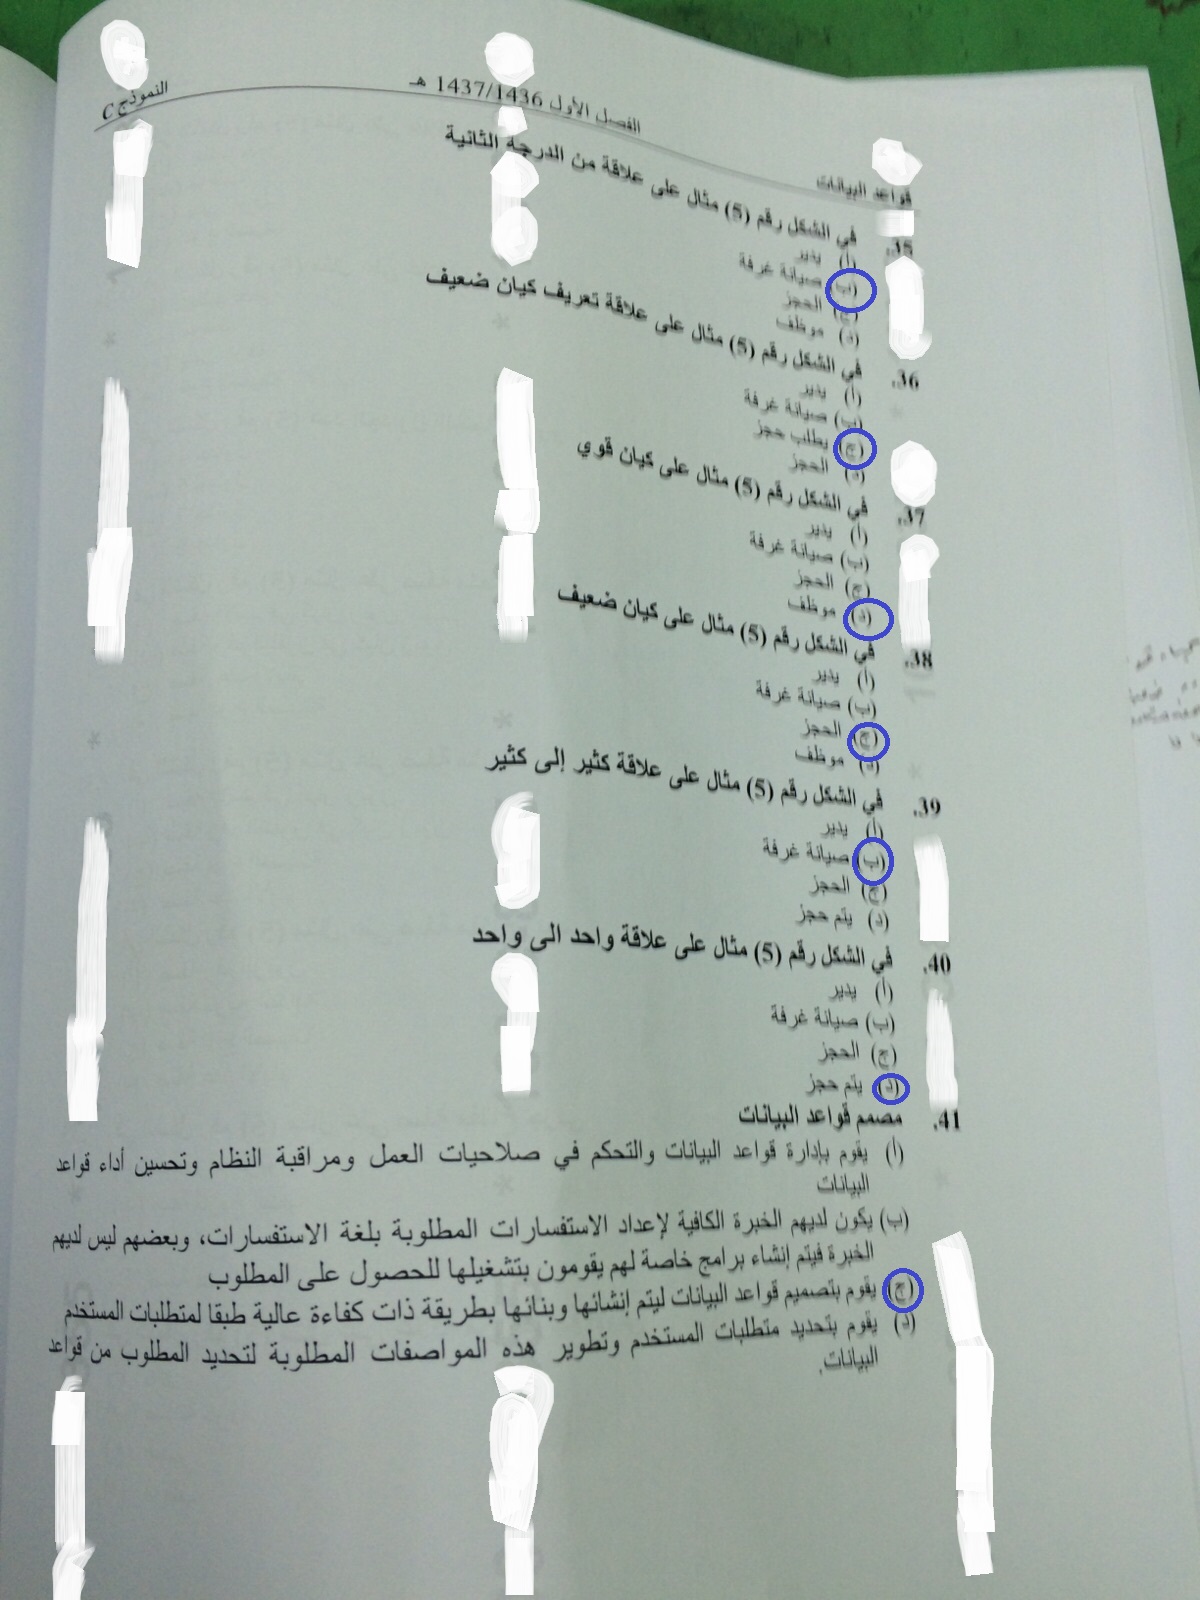 الفصل الأول 1437/1436 هـ
النموذج C
قواعد البيانات
35. في الشكل رقم (5) مثال على علاقة من الدرجة الثانية
(أ) يدير
(ب) صيانة غرفة
(ج) الحجز
(د) موظف
36. في الشكل رقم (5) مثال على علاقة تعريف كيان ضعيف
(أ) يدير
(ب) صيانة غرفة
(ج) يطلب حجز
(د) الحجز
37. في الشكل رقم (5) مثال على كيان قوي
(أ) يدير
(ب) صيانة غرفة
(ج) الحجز
(د) موظف
38. في الشكل رقم (5) مثال على كيان ضعيف
(أ) يدير
(ب) صيانة غرفة
(ج) الحجز
(د) موظف
39. في الشكل رقم (5) مثال على علاقة كثير إلى كثير
(أ) يدير
(ب) صيانة غرفة
(ج) الحجز
(د) يتم حجز
40. في الشكل رقم (5) مثال على علاقة واحد الى واحد
(أ) يدير
(ب) صيانة غرفة
(ج) الحجز
(د) يتم حجز
41. مصمم قواعد البيانات
(أ) يقوم بإدارة قواعد البيانات والتحكم في صلاحيات العمل ومراقبة النظام وتحسين أداء قواعد
البيانات
(ب) يكون لديهم الخبرة الكافية لإعداد الاستفسارات المطلوبة بلغة الاستفسارات، وبعضهم ليس لديهم
الخبرة فيتم إنشاء برامج خاصة لهم يقومون بتشغيلها للحصول على المطلوب
(ج) يقوم بتصميم قواعد البيانات ليتم إنشائها وبنائها بطريقة ذات كفاءة عالية طبقا لمتطلبات المستخدم
(د) يقوم بتحديد متطلبات المستخدم وتطوير هذه المواصفات المطلوبة لتحديد المطلوب من قواعد
البيانات.